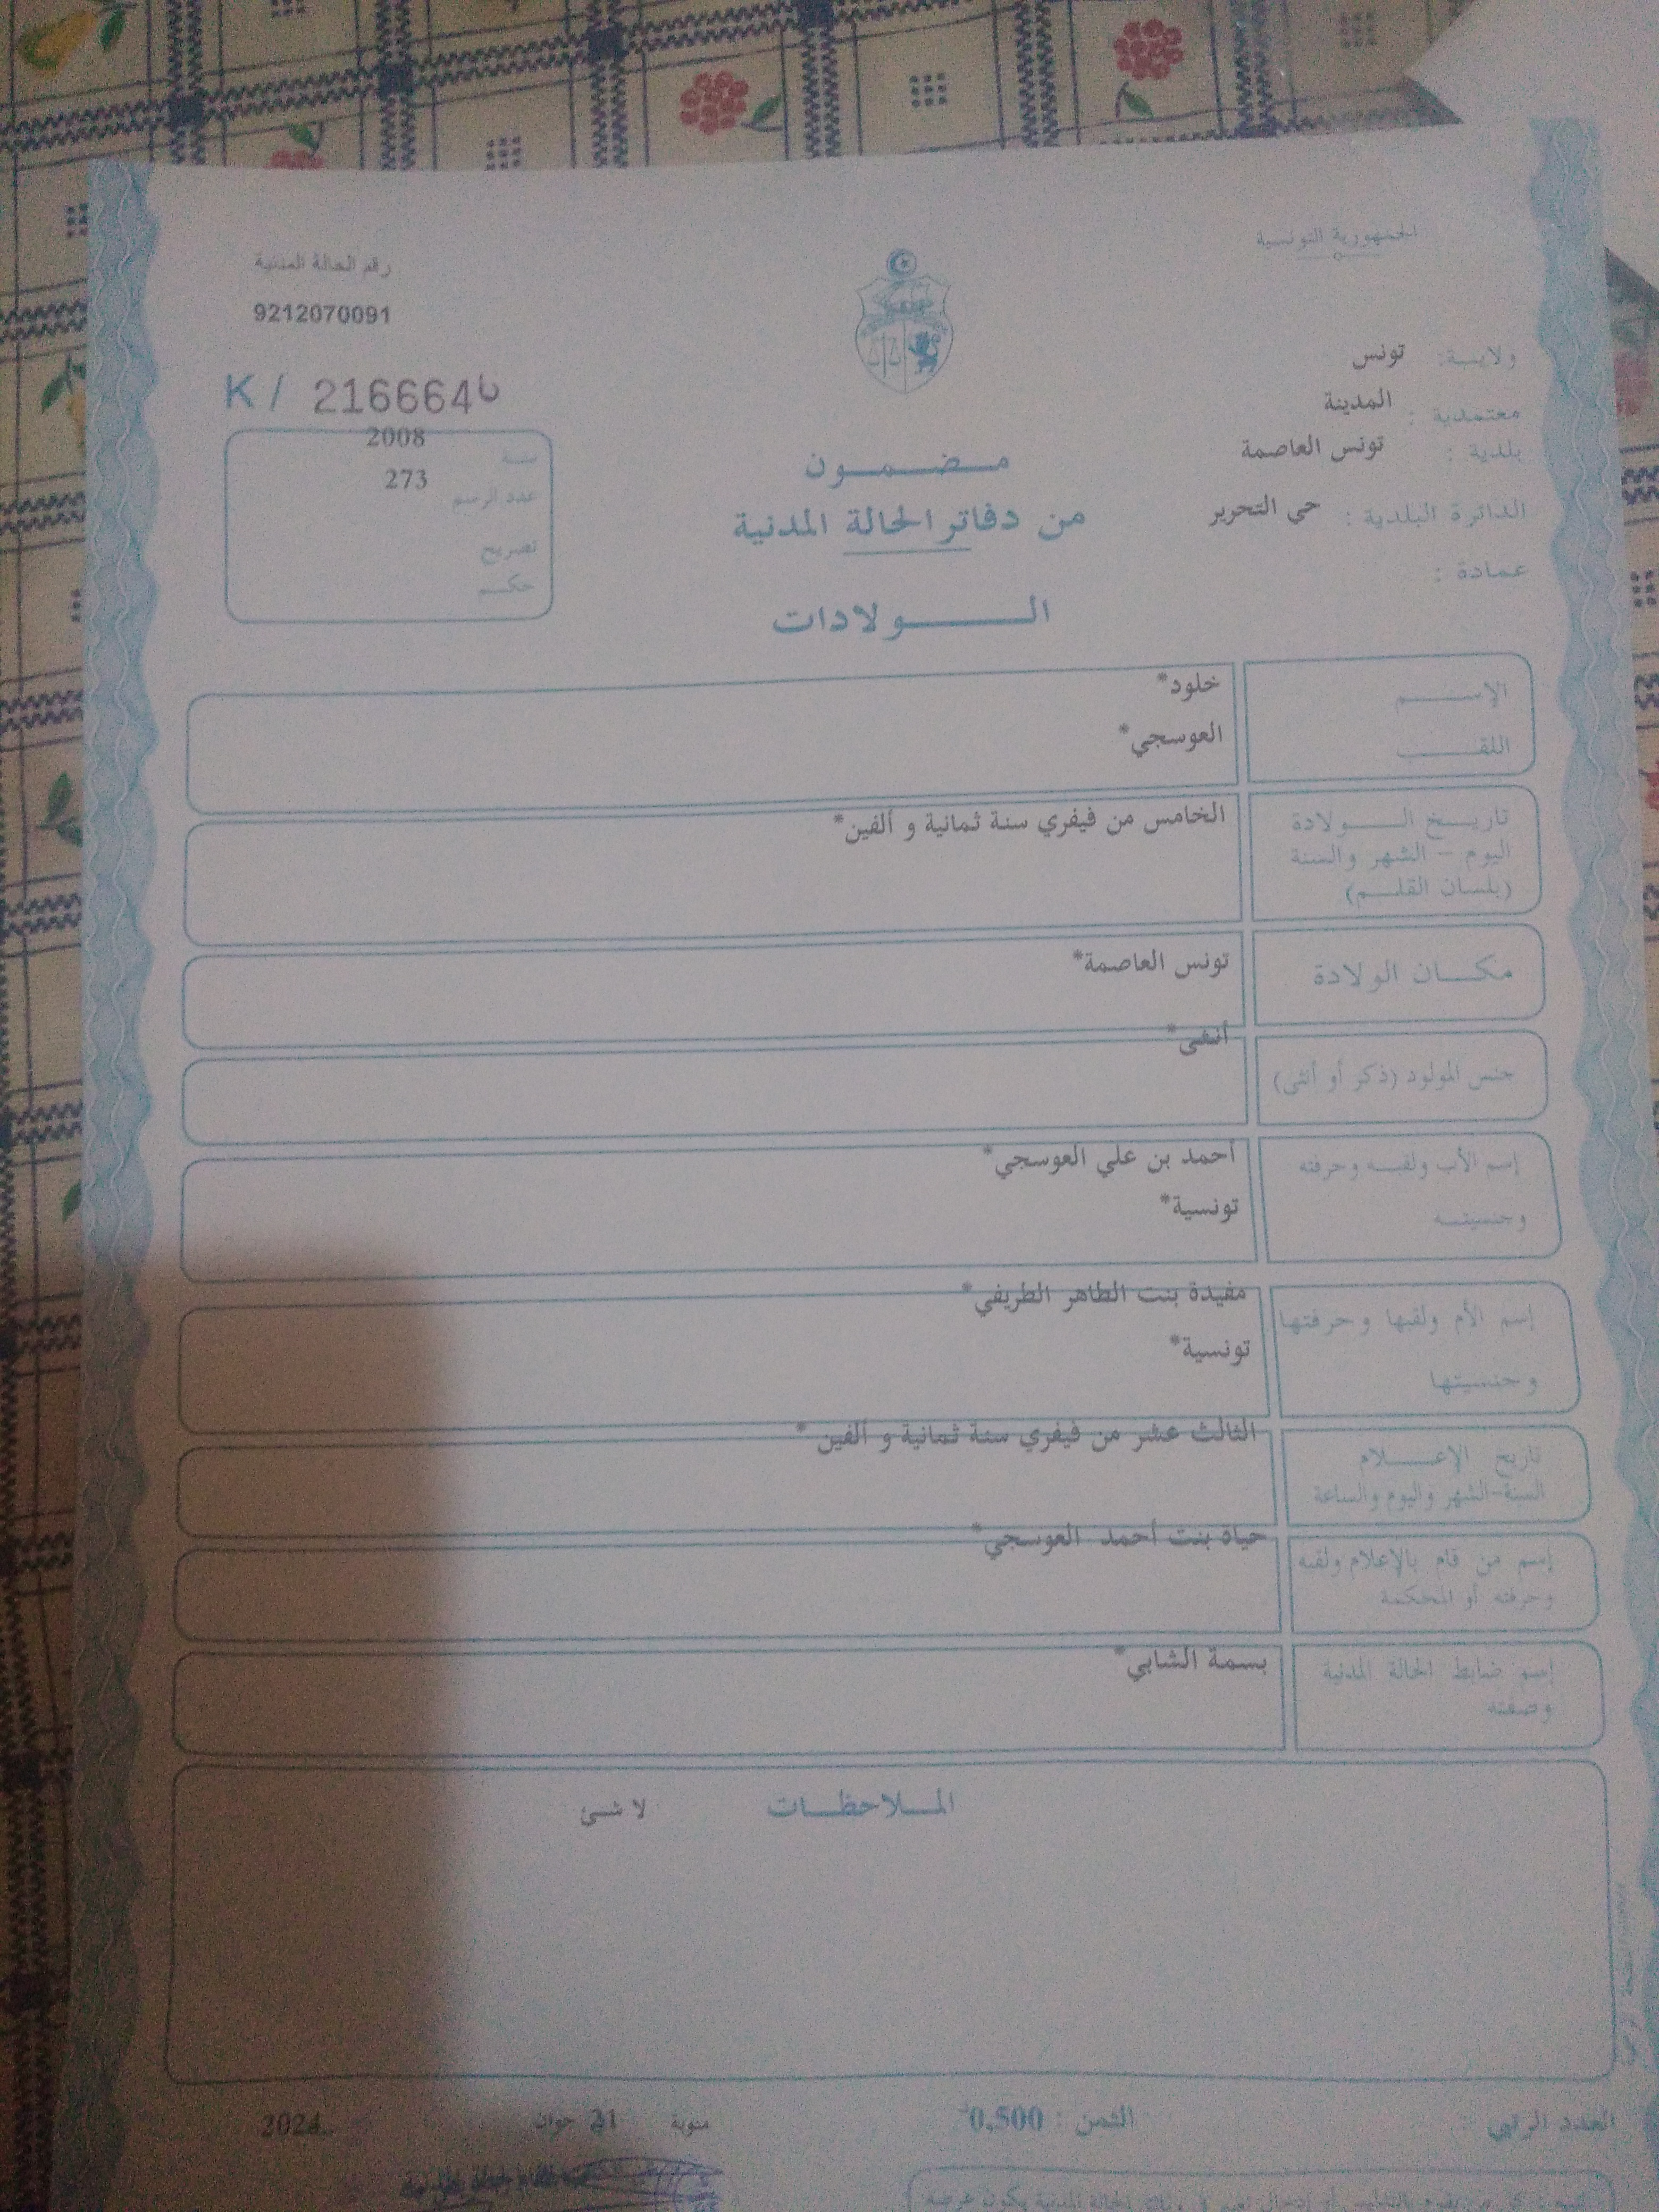 الجمهورية التونسية
رقم الحالة المدنية
9212070091
ولايـة: تونس
معتمدية : المدينة
بلدية : تونس العاصمة
الدائرة البلدية : حي التحرير
عمادة :
K / 216664
سنة 2008
عدد الرسم 273
تصريح
حكم
مضمون
من دفاتر الحالة المدنية
الولادات
الإسم خلود*
اللقب العوسجي*
تاريخ الولادة الخامس من فيفري سنة ثمانية و ألفين*
اليوم - الشهر والسنة
(بلسان القلم)
مكان الولادة تونس العاصمة*
جنس المولود (ذكر أو أنثى) أنثى*
إسم الأب ولقبه وحرفته أحمد بن علي العوسجي*
وجنسيته تونسية*
إسم الأم ولقبها وحرفتها مفيدة بنت الطاهر الطريفي*
وجنسيتها تونسية*
تاريخ الإعلام الثالث عشر من فيفري سنة ثمانية و ألفين*
السنة-الشهر واليوم والساعة
إسم من قام بالإعلام ولقبه حياة بنت أحمد العوسجي*
وحرفته أو المحكمة
إسم ضابط الحالة المدنية بسمة الشابي*
وصفته
الملاحظات لا شئ
العدد الرتبي
الثمن : 0,500د
منوبة 21 جوان 2024